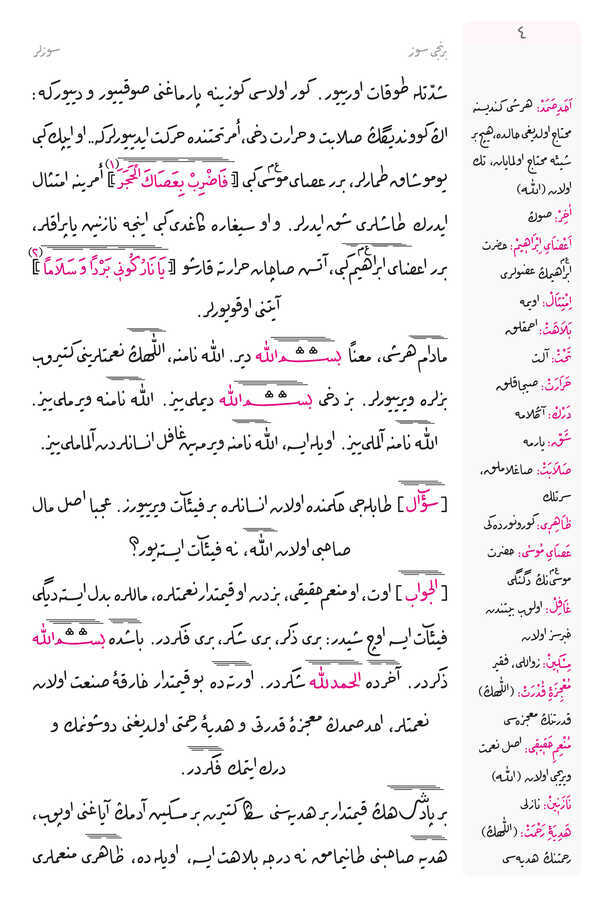 ٤
برنجی سوز
سوزلر
شدّتله طوقات اورییور. كور اولاسی كوزینه پارماغنی صوقییور و دییوركه:
اڭ كووندیگڭ صلابت و حرارت دخی، أمر تحتنده حركت ایدییورلركه.. او ایپك كبی
یوموشاق طمارلر، برر عصای موسٰی (ع م) كبی [فَاضْرِبْ بِعَصَاكَ الْحَجَرَ] (١) أمرینه امتثال
ایدرك طاشلری شق ایدرلر. و او سیغاره كاغدی كبی اینجه نازنین یاپراقلر،
برر اعضای ابراهیم (ع م) كبی، آتش صاچان حرارته قارشو [يَا نَارُ كُونِي بَرْدًا وَ سَلَامًا] (٢)
آیتنی اوقویورلر.
مادام هرشی، معنًا بســـم الله دیر. اللّٰه نامنه، اللّٰهڭ نعمتلرینی كتیروب
بزلره ویرییورلر. بز دخی بســـم الله دیملی‌یز. اللّٰه نامنه ویرملی‌یز.
اللّٰه نامنه آلملی‌یز. اویله ایسه، اللّٰه نامنه ویرمه‌ین غافل انسانلردن آلماملی‌یز.
[سؤال] طابله‌جی حكمنده اولان انسانلره بر فیئات ویرییورز. عجبا اصل مال
صاحبی اولان اللّٰه، نه فیئات ایسته‌یور؟
[الجواب] اوت، او منعم حقیقی، بزدن او قیمتدار نعمتلره، ماللره بدل ایسته‌دیگی
فیئات ایسه اوچ شیدر: بری ذكر، بری شكر، بری فكردر. باشده بســـم الله
ذكردر. آخرده الحمدلله شكردر. اورته‌ده بو قیمتدار خارقهٔ صنعت اولان
نعمتلر، احد صمدڭ معجزهٔ قدرتی و هدیهٔ رحمتی اولدیغنی دوشونمك و
درك ایتمك فكردر.
بر پادشاهڭ قیمتدار بر هدیه‌سنی سڭا كتیرن بر مسكین آدمڭ آیاغنی اوپوب،
هدیه صاحبنی طانیمامق نه درجه بلاهت ایسه، اویله ده، ظاهری منعملری
اَحَدِ صَمَدْ: هرشی كندیسنه
محتاج اولدیغی حالده، هیچ بر
شیئه محتاج اولمایان، تك
اولان (اللّٰه)
اٰخِرْ: صوڭ
اَعْضَایِ اِبْرَاهِیمْ: حضرت
ابراهیمڭ (ع م) عضولری
اِمْتِثَالْ: اویمه
بَلَاهَتْ: احمقلق
تَحْتْ: آلت
حَرَارَتْ: صیجاقلق
دَرْكْ: آڭلامه
شَقْ: یارمه
صَلَابَتْ: صاغلاملق،
سرتلك
ظَاهِرِی: كورونورده‌كی
عَصَایِ مُوسٰی: حضرت
موسٰی‌نڭ (ع م) دگنگی
غَافِلْ: اولوب بیتندن
خبرسز اولان
مِسْكِینْ: زواللی، فقیر
مُعْجِزَۀِ قُدْرَتْ: (اللّٰهڭ)
قدرتنڭ معجزه‌سی
مُنْعِمِ حَقِیقِی: اصل نعمت
ویریجی اولان (اللّٰه)
نَازَنِینْ: نازلی
هَدِیَۀِ رَحْمَتْ: (اللّٰهڭ)
رحمتنڭ هدیه‌سی